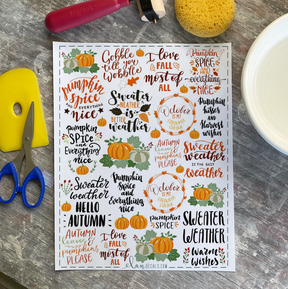 Gobble
till you
Wobble
Sweater
WEATHER
IS BETTER
weather
I love
FALL
most of
ALL
Pumpkin
SPICE
AND
everything
NICE
pumpkin
SPICE
EVERYTHING
NICE
October
IS MY
Pumpkin
kisses
and
Harvest
wishes
Pumpkin
SPICE
and
Everything
nice
AUTUMN
leaves &
pumpkins
PLEASE
Sweater
weather
IS THE BEST
WEATHER
Sweater
weather
HELLO
AUTUMN
Pumpkin
Spice
and
everything
Nice
October
IS MY
AUTUMN
leaves &
pumpkins
PLEASE
I love
FALL
most of
ALL
pumpkin
SPICE
SWEATER
WEATHER
Warm
wishes